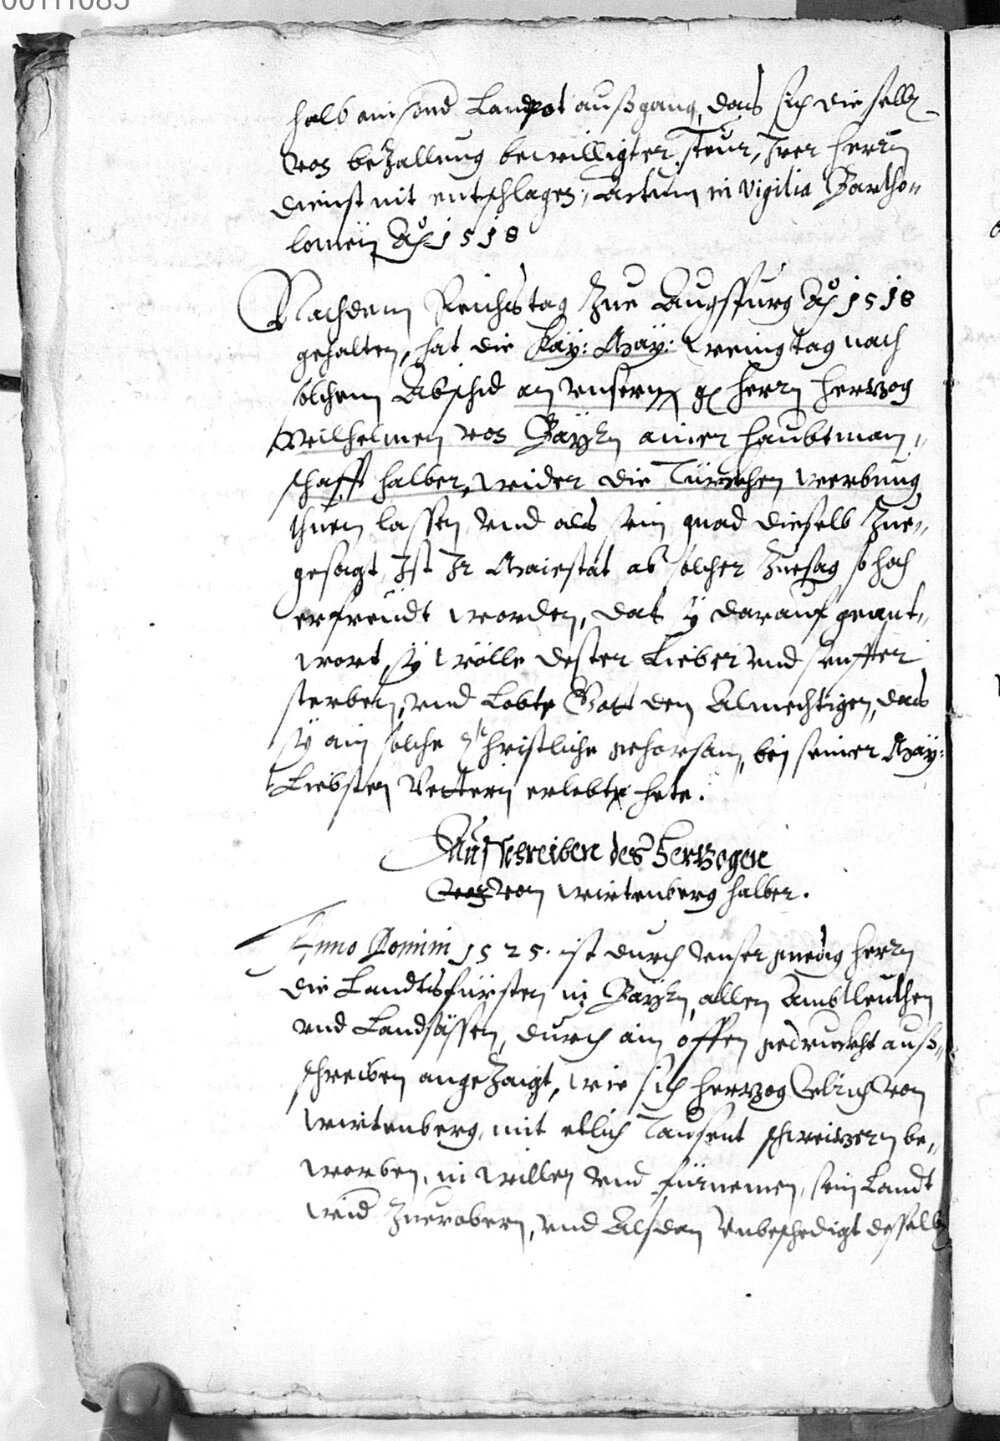 00111085
halb ain sond Landpot außgang, das sich die selb
vor bezallung bewilligter steur, Irer herrn
dienst nit entschlagen, Actum in vigilia Bartho„
lomei Ao 1518
Nachdem Reichstag zue Augspurg Ao 1518
gehalten, hat die Kay: May: wenig tag nach
solchem Abschid an unsern g herrn herzog
Wilhelmen von Bayrn ainer haubtman„
schafft halber, wider die Türckhen werbung
thuen lassen, und als sein gnad dieselb zue„
gesagt, Ist Ir Maiestat ab solcher zuesag so hoch
erfreudt worden, das sy darauf geant„
wort, sy wölle dester lieber und senffter
sterben, und lobte Gott den Almechtigen, das
sy ain solche Christliche gehorsam, bei seiner May:
Liebsten Vettern erlebt hete.
Außschreiben des Herzogen
von wirtenberg halber.
Anno Domini 1525. ist durch unser gnedig herrn
die Landtsfürsten in Bayrn, allen Ambtleuthen
und Landsässen, durch ain offen gedruckht auß„
schreiben angezaigt, wie sich herzog Ulrich von
Wirtenberg, mit etlich Tausent schweizern be„
worben, in willen und fürnemen, sein Landt
wid zuerobern, und Alsdan unbeschedigt desselb